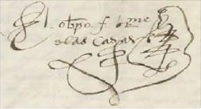 El obpo fr bar me
de las casas